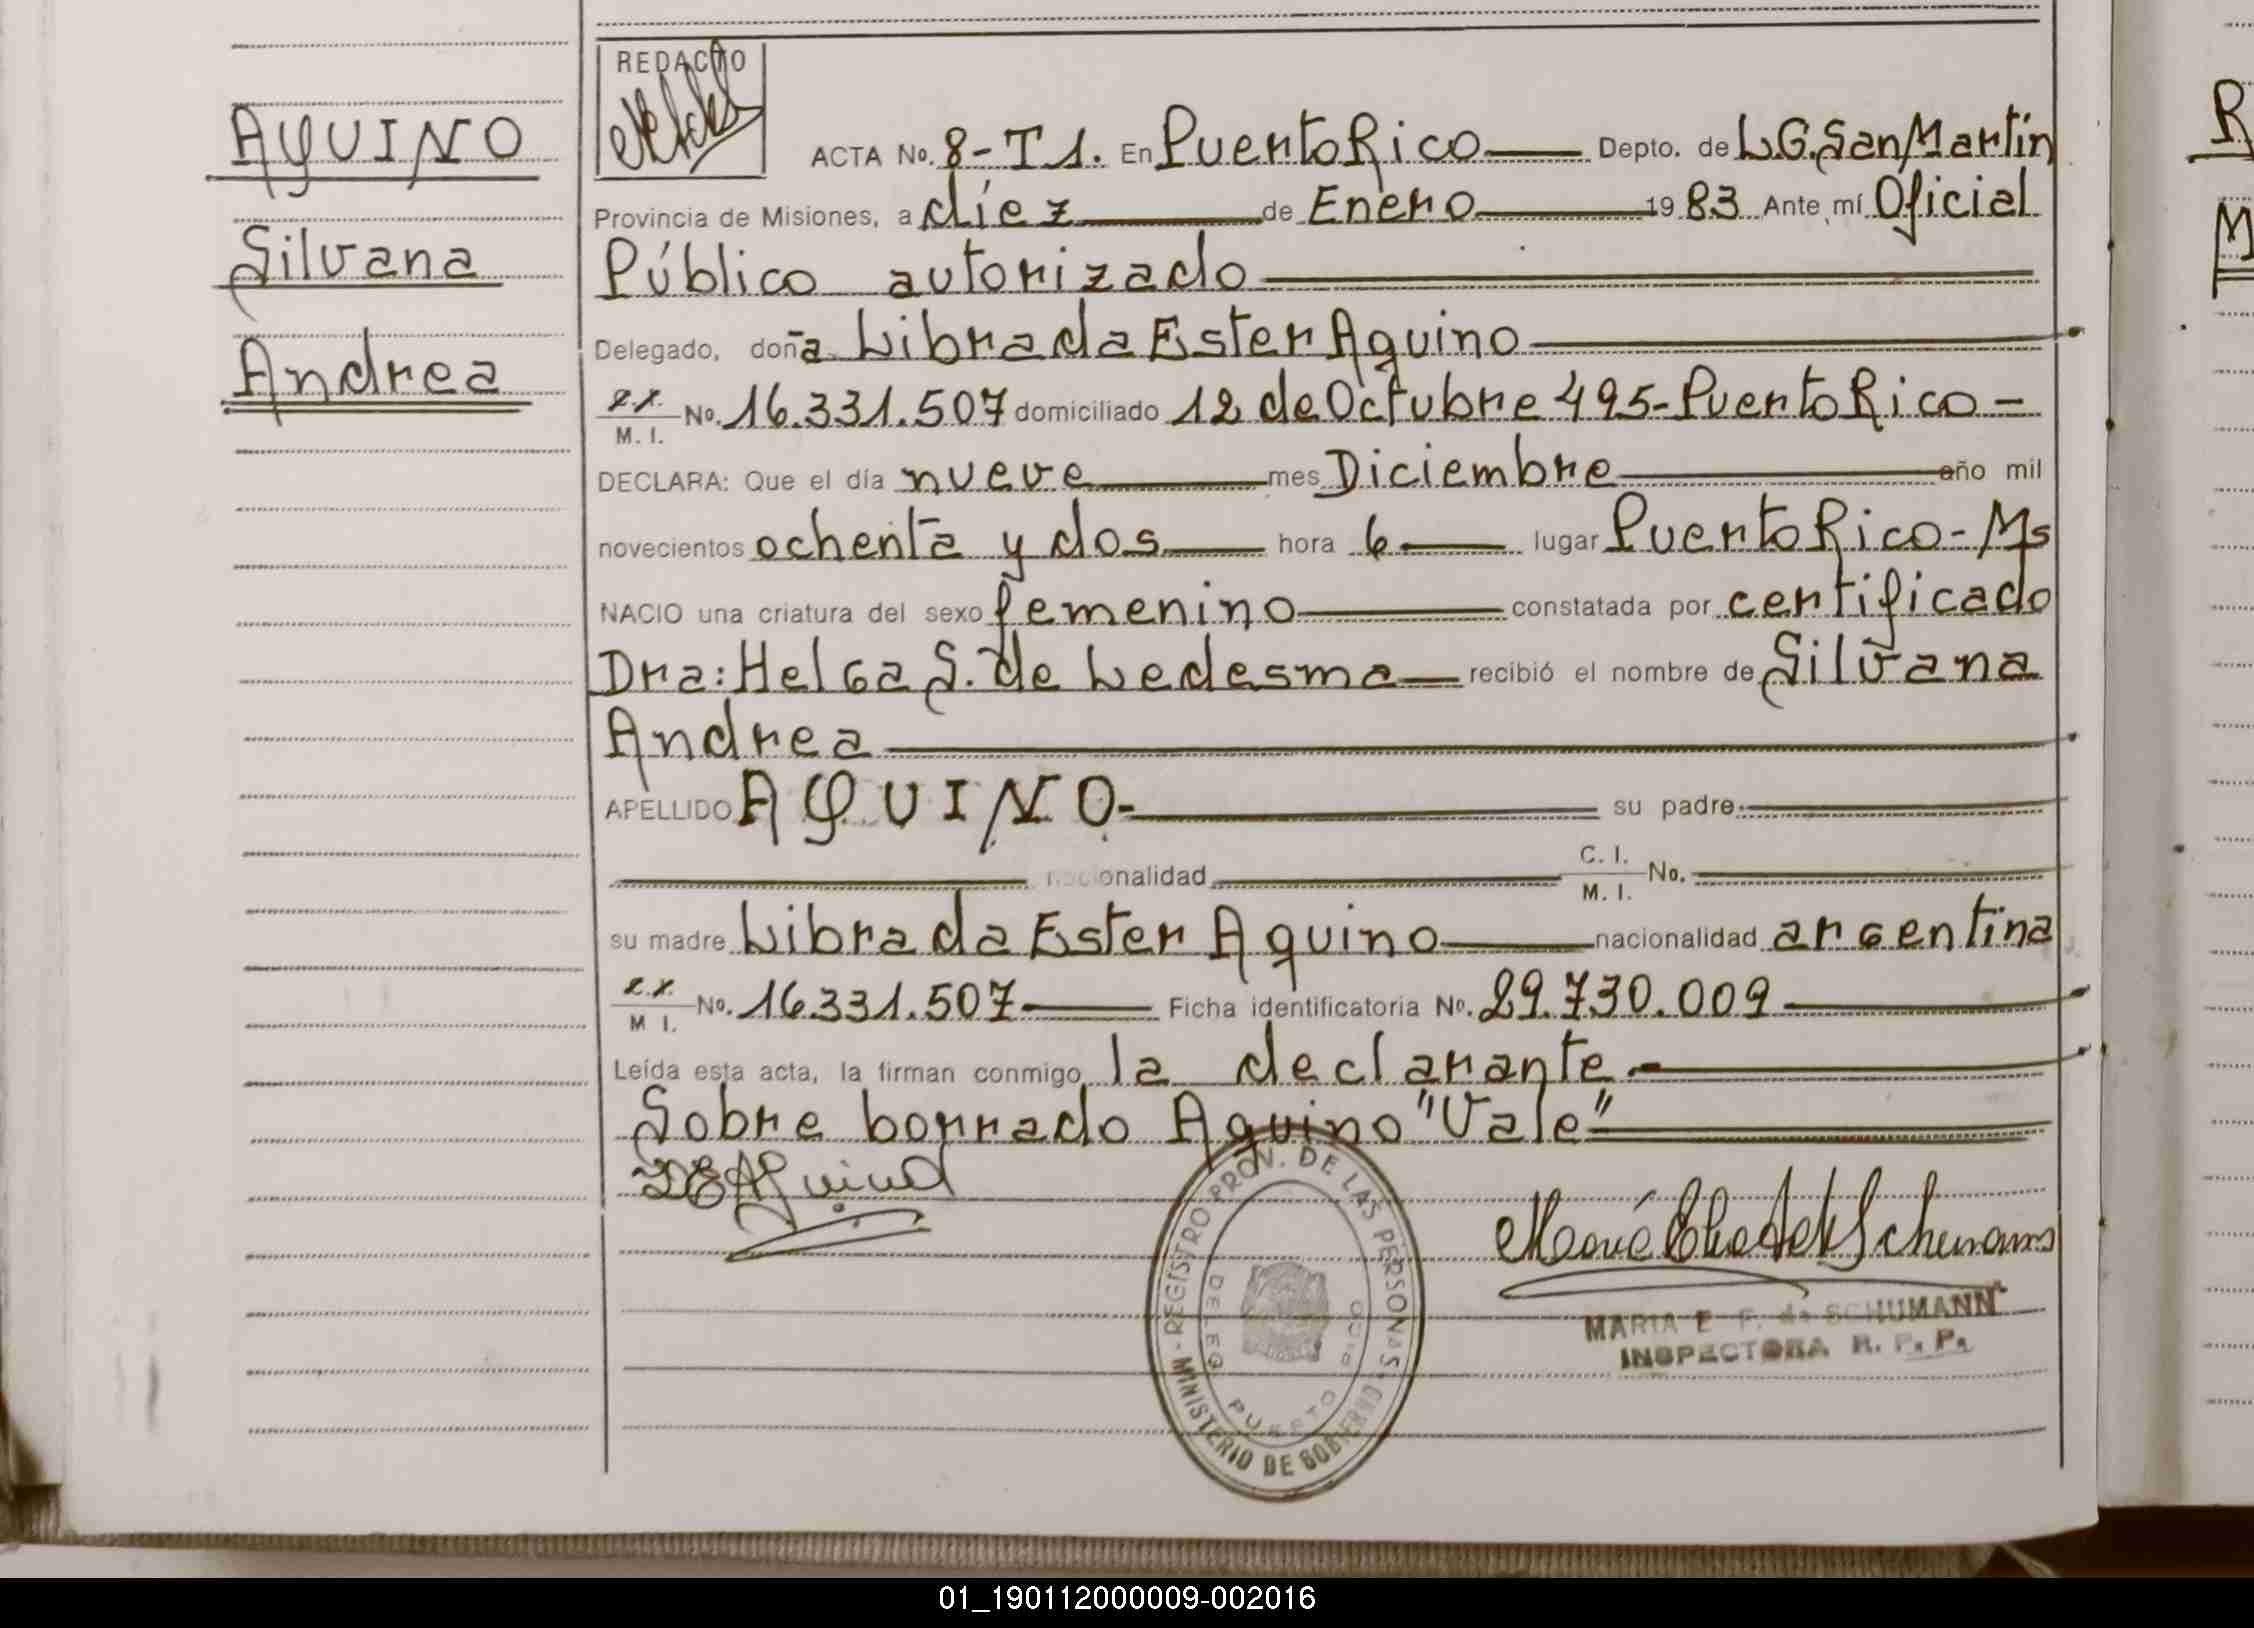 AQUINO
Silvana
Andrea
REDACTO
ACTA No. 8-T1. En Puerto Rico Depto. de L.G. San Martín
Provincia de Misiones, a diez de Enero 1983 Ante mí Oficial
Público autorizado
Delegado, doña Librada Ester Aquino
M. I. No. 16.331.507 domiciliado 12 de Octubre 495-Puerto Rico-
DECLARA: Que el día nueve mes Diciembre año mil
novecientos ochenta y dos hora 6 lugar Puerto Rico-Ms
NACIO una criatura del sexo femenino constatada por certificado
Dra: Helga S. de Ledesma recibió el nombre de Silvana
Andrea
APELLIDO AQUINO- su padre
nacionalidad C. I. M. I. No.
su madre Librada Ester Aquino nacionalidad argentina
M I. No. 16.331.507 Ficha identificatoria No. 29.730.009
Leída esta acta, la firman conmigo la declarante.-
Sobre borrado Aquino "Vale"
LEAquino
REGISTRO PROV. DE LAS PERSONAS - MINISTERIO DE GOBIERNO
DELEG. PUERTO RICO
MARIA E. F. de SCHUMANN
INSPECTORA R. P. P.
R
M
01_190112000009-002016